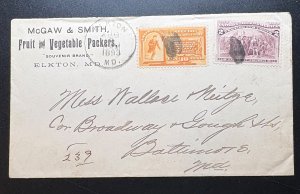 McGAW & SMITH,
Fruit and Vegetable Packers,
SOUVENIR BRAND
ELKTON, MD.
1893
MD.
Miss Wallace
Cor Broadway & Gough Sts
Baltimore
Md.
239